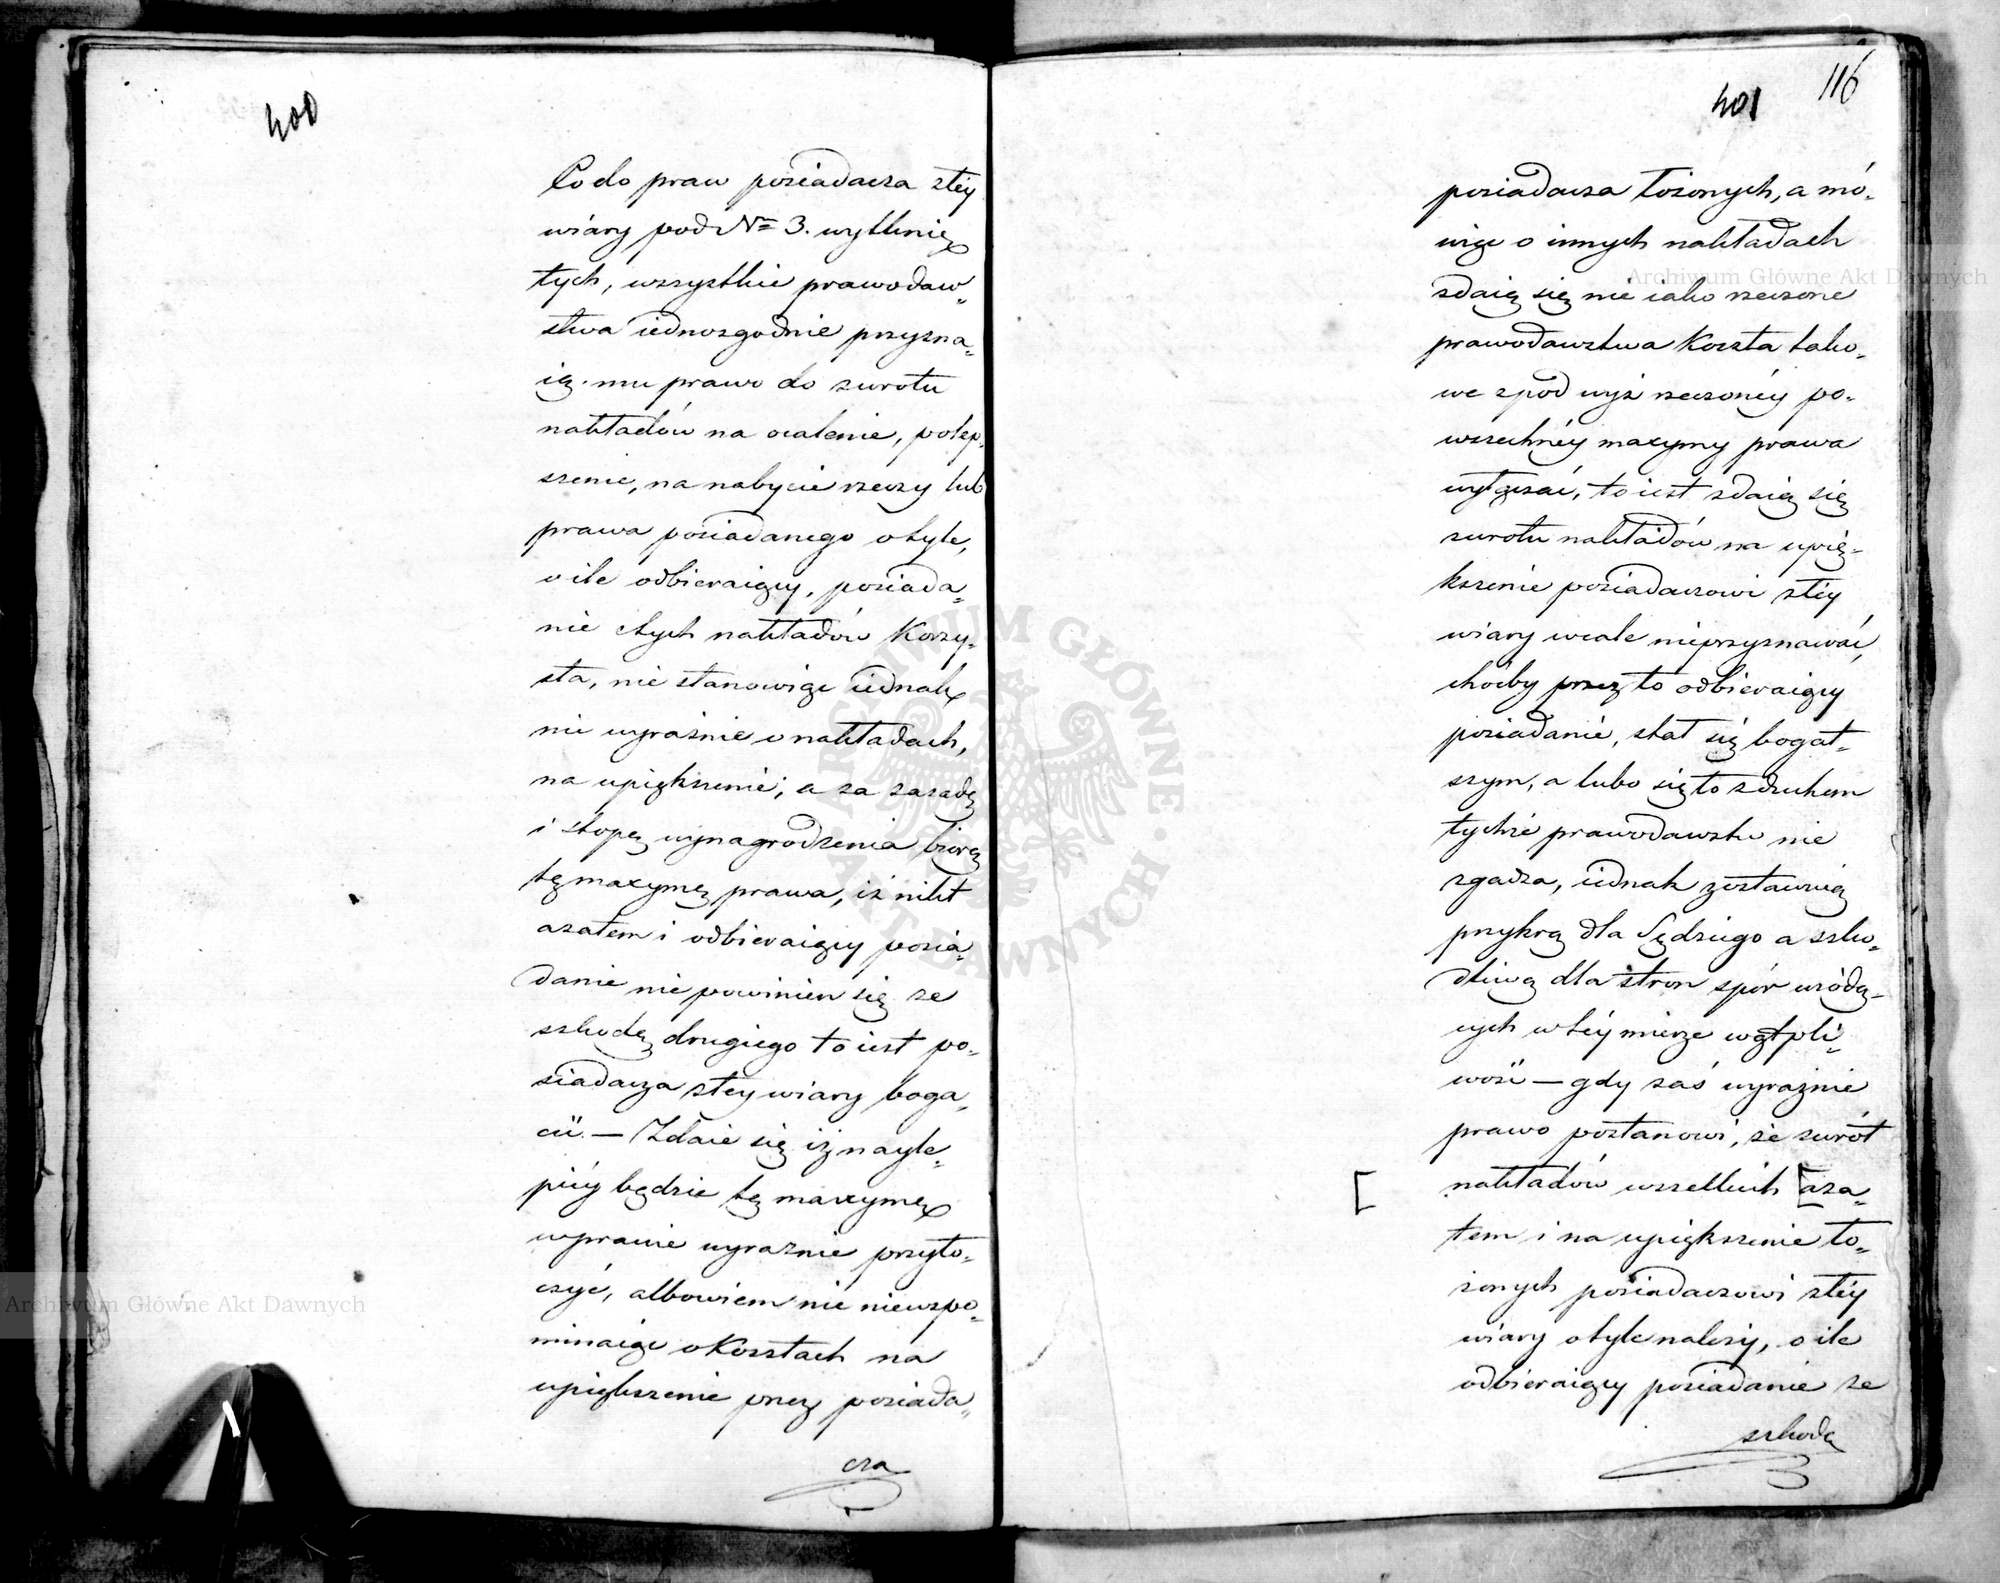 400
Co do praw posiadacza złéy
wiary pod Nº 3. wytknię„
tych, wszystkie prawodaw„
stwa iednozgodnie przyzna„
ią mu prawo do zwrotu
nakładów na ocalenie, polep„
szenie, na nabycie rzeczy lub
prawa posiadanego o tyle,
o ile odbieraiący, posiada„
nie z tych nakładów korzy„
sta, nie stanowiąc iednak
nic wyraźnie o nakładach,
na upiększenie; a za zasadę
i stopę wynagrodzenia biorą
tę maxymę prawa, iż nikt
azatem i odbieraiący posia„
danie nie powinien się ze
szkodą drugiego to iest po„
siadacza złey wiary boga„
cić. — Zdaie się iż nayle„
piéy będzie tę maxymę
w prawie wyraznie przyto„
czyć, albowiem nic niewspo„
minaiąc o kosztach na
upiększenie przez posiada„
cza
116
401
posiadacza łożonych, a mó„
wiąc o innych nakładach
zdaią się nie iako rzeczone
prawodawstwa koszta tako„
we z pod wyż rzeczonéy po„
wszechnéy maxymy prawa
wyłączać, to iest zdaią się
zwrotu nakładów na upię„
kszenie posiadaczowi złéy
wiary wcale nieprzyznawać,
choćby przez to odbieraiący
posiadanie, stał się bogat„
szym, a lubo się to z duchem
tychże prawodawstw nie
zgadza, iednak zostawuią
przykrą dla Sędziego a szko„
dliwą dla stron spór wiodą„
cych w téy mierze wątpli„
wość — gdy zaś wyraźnie
prawo postanowi, że zwrót
[ nakładów wszelkich [aza„
tem i na upiększenie ło„
żonych posiadaczowi złéy
wiary o tyle należy, o ile
odbieraiący posiadanie ze
szkodą
Archiwum Główne Akt Dawnych
Archiwum Główne Akt Dawnych
ARCHIWUM GŁÓWNE AKT DAWNYCH